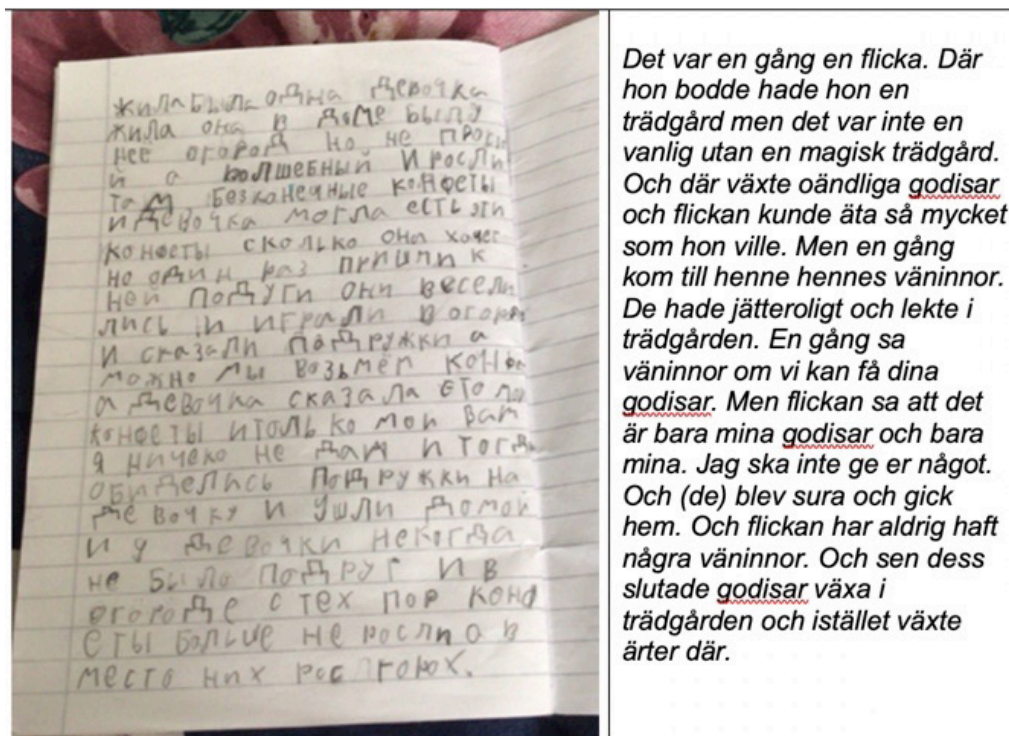 жила была одна девочка
жила она в доме был у
неё огород но не прос
й а волшебный И росли
там безконечные конфеты
и девочка могла есть эти
конфеты сколько она хочет
но один раз пришли к
ней подуги они весели
лись и играли в огоро
И сказали подружки а
можно мы возьмём конфе
а девочка сказала ето мои
конфеты итолько мои вам
я ничеко не дам и тогда
обиделись подружки на
девочку и ушли домой
и у девочки некогда
не было подруг и в
огороде с тех пор конф
еты больше не росли а в
место них рос горох.
Det var en gång en flicka. Där
hon bodde hade hon en
trädgård men det var inte en
vanlig utan en magisk trädgård.
Och där växte oändliga godisar
och flickan kunde äta så mycket
som hon ville. Men en gång
kom till henne hennes väninnor.
De hade jätteroligt och lekte i
trädgården. En gång sa
väninnor om vi kan få dina
godisar. Men flickan sa att det
är bara mina godisar och bara
mina. Jag ska inte ge er något.
Och (de) blev sura och gick
hem. Och flickan har aldrig haft
några väninnor. Och sen dess
slutade godisar växa i
trädgården och istället växte
ärter där.